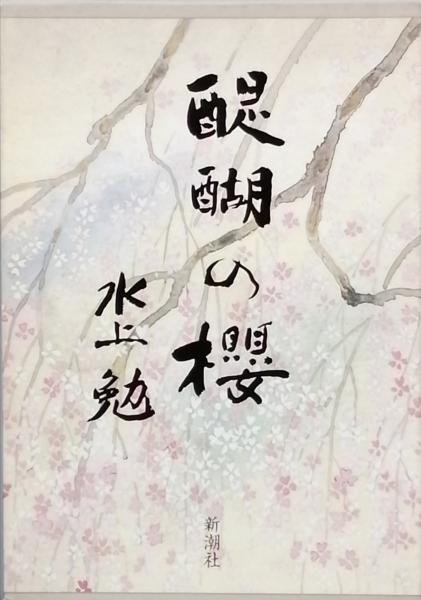 醍醐の櫻
水上勉
新潮社